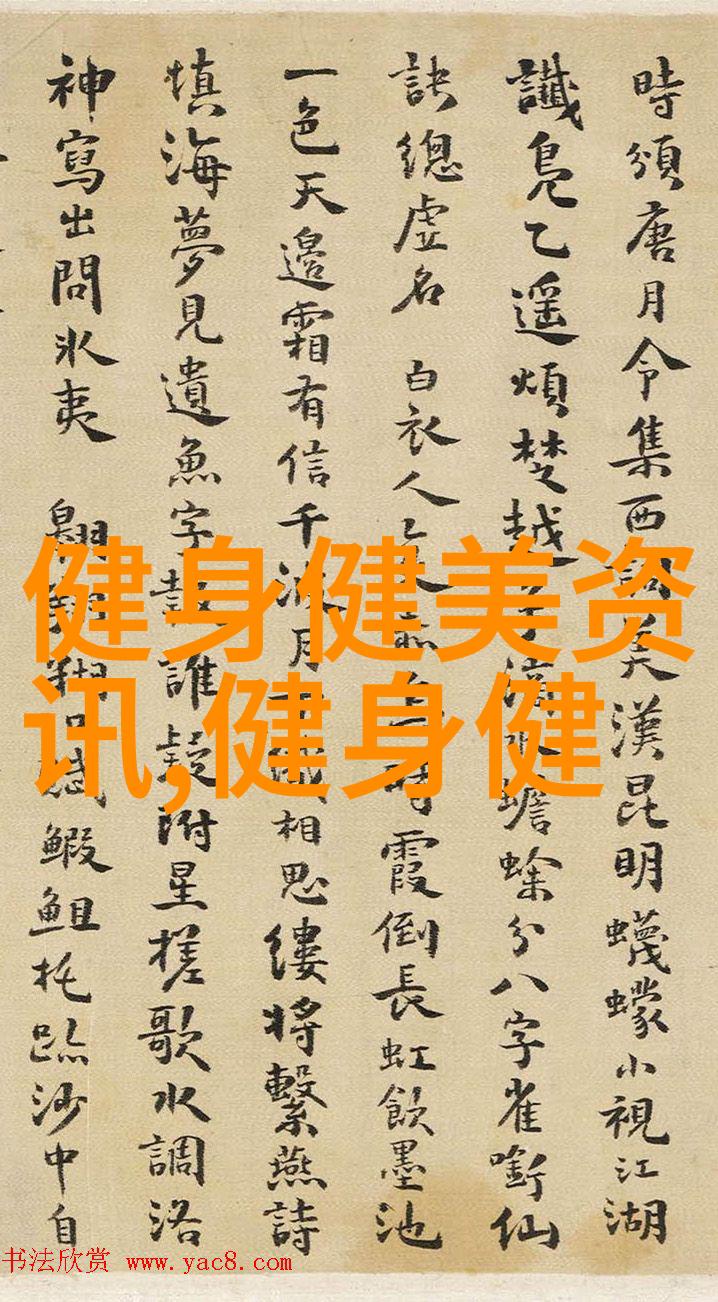 時頒唐月令集西美漢昆明蠛蠓小視江湖
讖鳧乙遥煩楚越水蟾蜍分八字雀啣仙
訣總虛名 白衣人時霞倒長虹飲墨池
一色天邊霜有信千波月相思縷將繫燕詩
填海夢見遺魚字誰疑附星槎歌水調洛
神寫出問氷夷 賦鰕鉏托跡沙中自
健身健美资
讯,健身健
书法欣赏 www.yac8.com